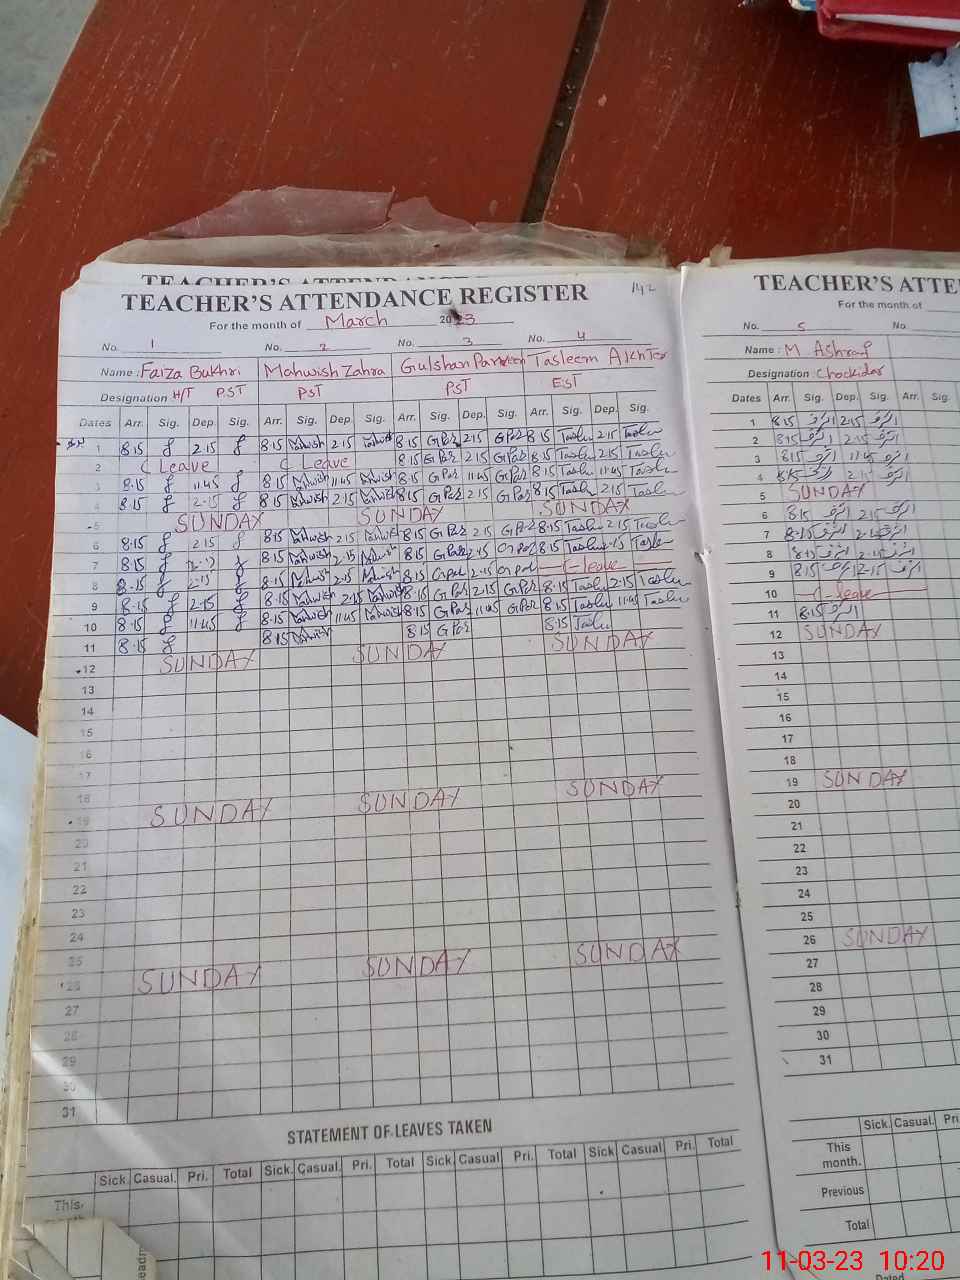 TEACHER'S ATTENDANCE REGISTER
142
For the month of March 2023
No. 1 No. 2 No. 3 No. 4
Name: Faiza Bukhri Mahwish Zahra Gulshan Parveen Tasleem Akhter
Designation H/T PST PST PST EST
Dates Arr. Sig. Dep. Sig. Arr. Sig. Dep. Sig. Arr. Sig. Dep. Sig. Arr. Sig. Dep. Sig.
1 8.15 2.15 8.15 Mahwish 2.15 Mahwish 8.15 GPar 2.15 GPar 8.15 Taslem 2.15 Taslem
2 C Leave C Leave 8.15 GPar 2.15 GPar 8.15 Taslem 2.15 Taslem
3 8.15 11.45 8.15 Mahwish 11.45 Mahwish 8.15 GPar 11.45 GPar 8.15 Taslem 11.45 Taslem
4 8.15 2.15 8.15 Mahwish 2.15 Mahwish 8.15 GPar 2.15 GPar 8.15 Taslem 2.15 Taslem
5 SUNDAY SUNDAY SUNDAY
6 8.15 2.15 8.15 Mahwish 2.15 Mahwish 8.15 GPar 2.15 GPar 8.15 Taslem 2.15 Taslem
7 8.15 8.15 Mahwish 2.15 Mahwish 8.15 GPar 2.15 GPar 8.15 Taslem 2.15 Taslem
8 8.15 2.15 8.15 Mahwish 2.15 Mahwish 8.15 GPar 2.15 GPar C-leave
9 8.15 2.15 8.15 Mahwish 2.15 Mahwish 8.15 GPar 2.15 GPar 8.15 Taslem 2.15 Taslem
10 8.15 11.45 8.15 Mahwish 11.45 Mahwish 8.15 GPar 11.45 GPar 8.15 Taslem 11.45 Taslem
11 8.15 8.15 Mahwish 8.15 GPar 8.15 Taslem
12 SUNDAY SUNDAY SUNDAY
13
14
15
16
17
18
19 SUNDAY SUNDAY SUNDAY
20
21
22
23
24
25
26 SUNDAY SUNDAY SUNDAY
27
28
29
30
31
STATEMENT OF LEAVES TAKEN
Sick. Casual. Pri. Total Sick. Casual. Pri. Total Sick. Casual. Pri. Total Sick. Casual. Pri. Total
This
TEACHER'S ATTE
For the month of
No. 5 No.
Name: M Ashraf
Designation Chockidar
Dates Arr. Sig. Dep. Sig. Arr. Sig.
1 8.15 اشرف 2.15 اشرف
2 8.15 اشرف 2.15 اشرف
3 8.15 اشرف 11.45 اشرف
4 8.15 اشرف 2.15 اشرف
5 SUNDAY
6 8.15 اشرف 2.15 اشرف
7 8.15 اشرف 2.15 اشرف
8 8.15 اشرف 2.15 اشرف
9 8.15 اشرف 2.15 اشرف
10 C-leave
11 8.15 اشرف
12 SUNDAY
13
14
15
16
17
18
19 SUNDAY
20
21
22
23
24
25
26 SUNDAY
27
28
29
30
31
Sick. Casual. Pri
This month.
Previous
Total
Dated
11-03-23 10:20